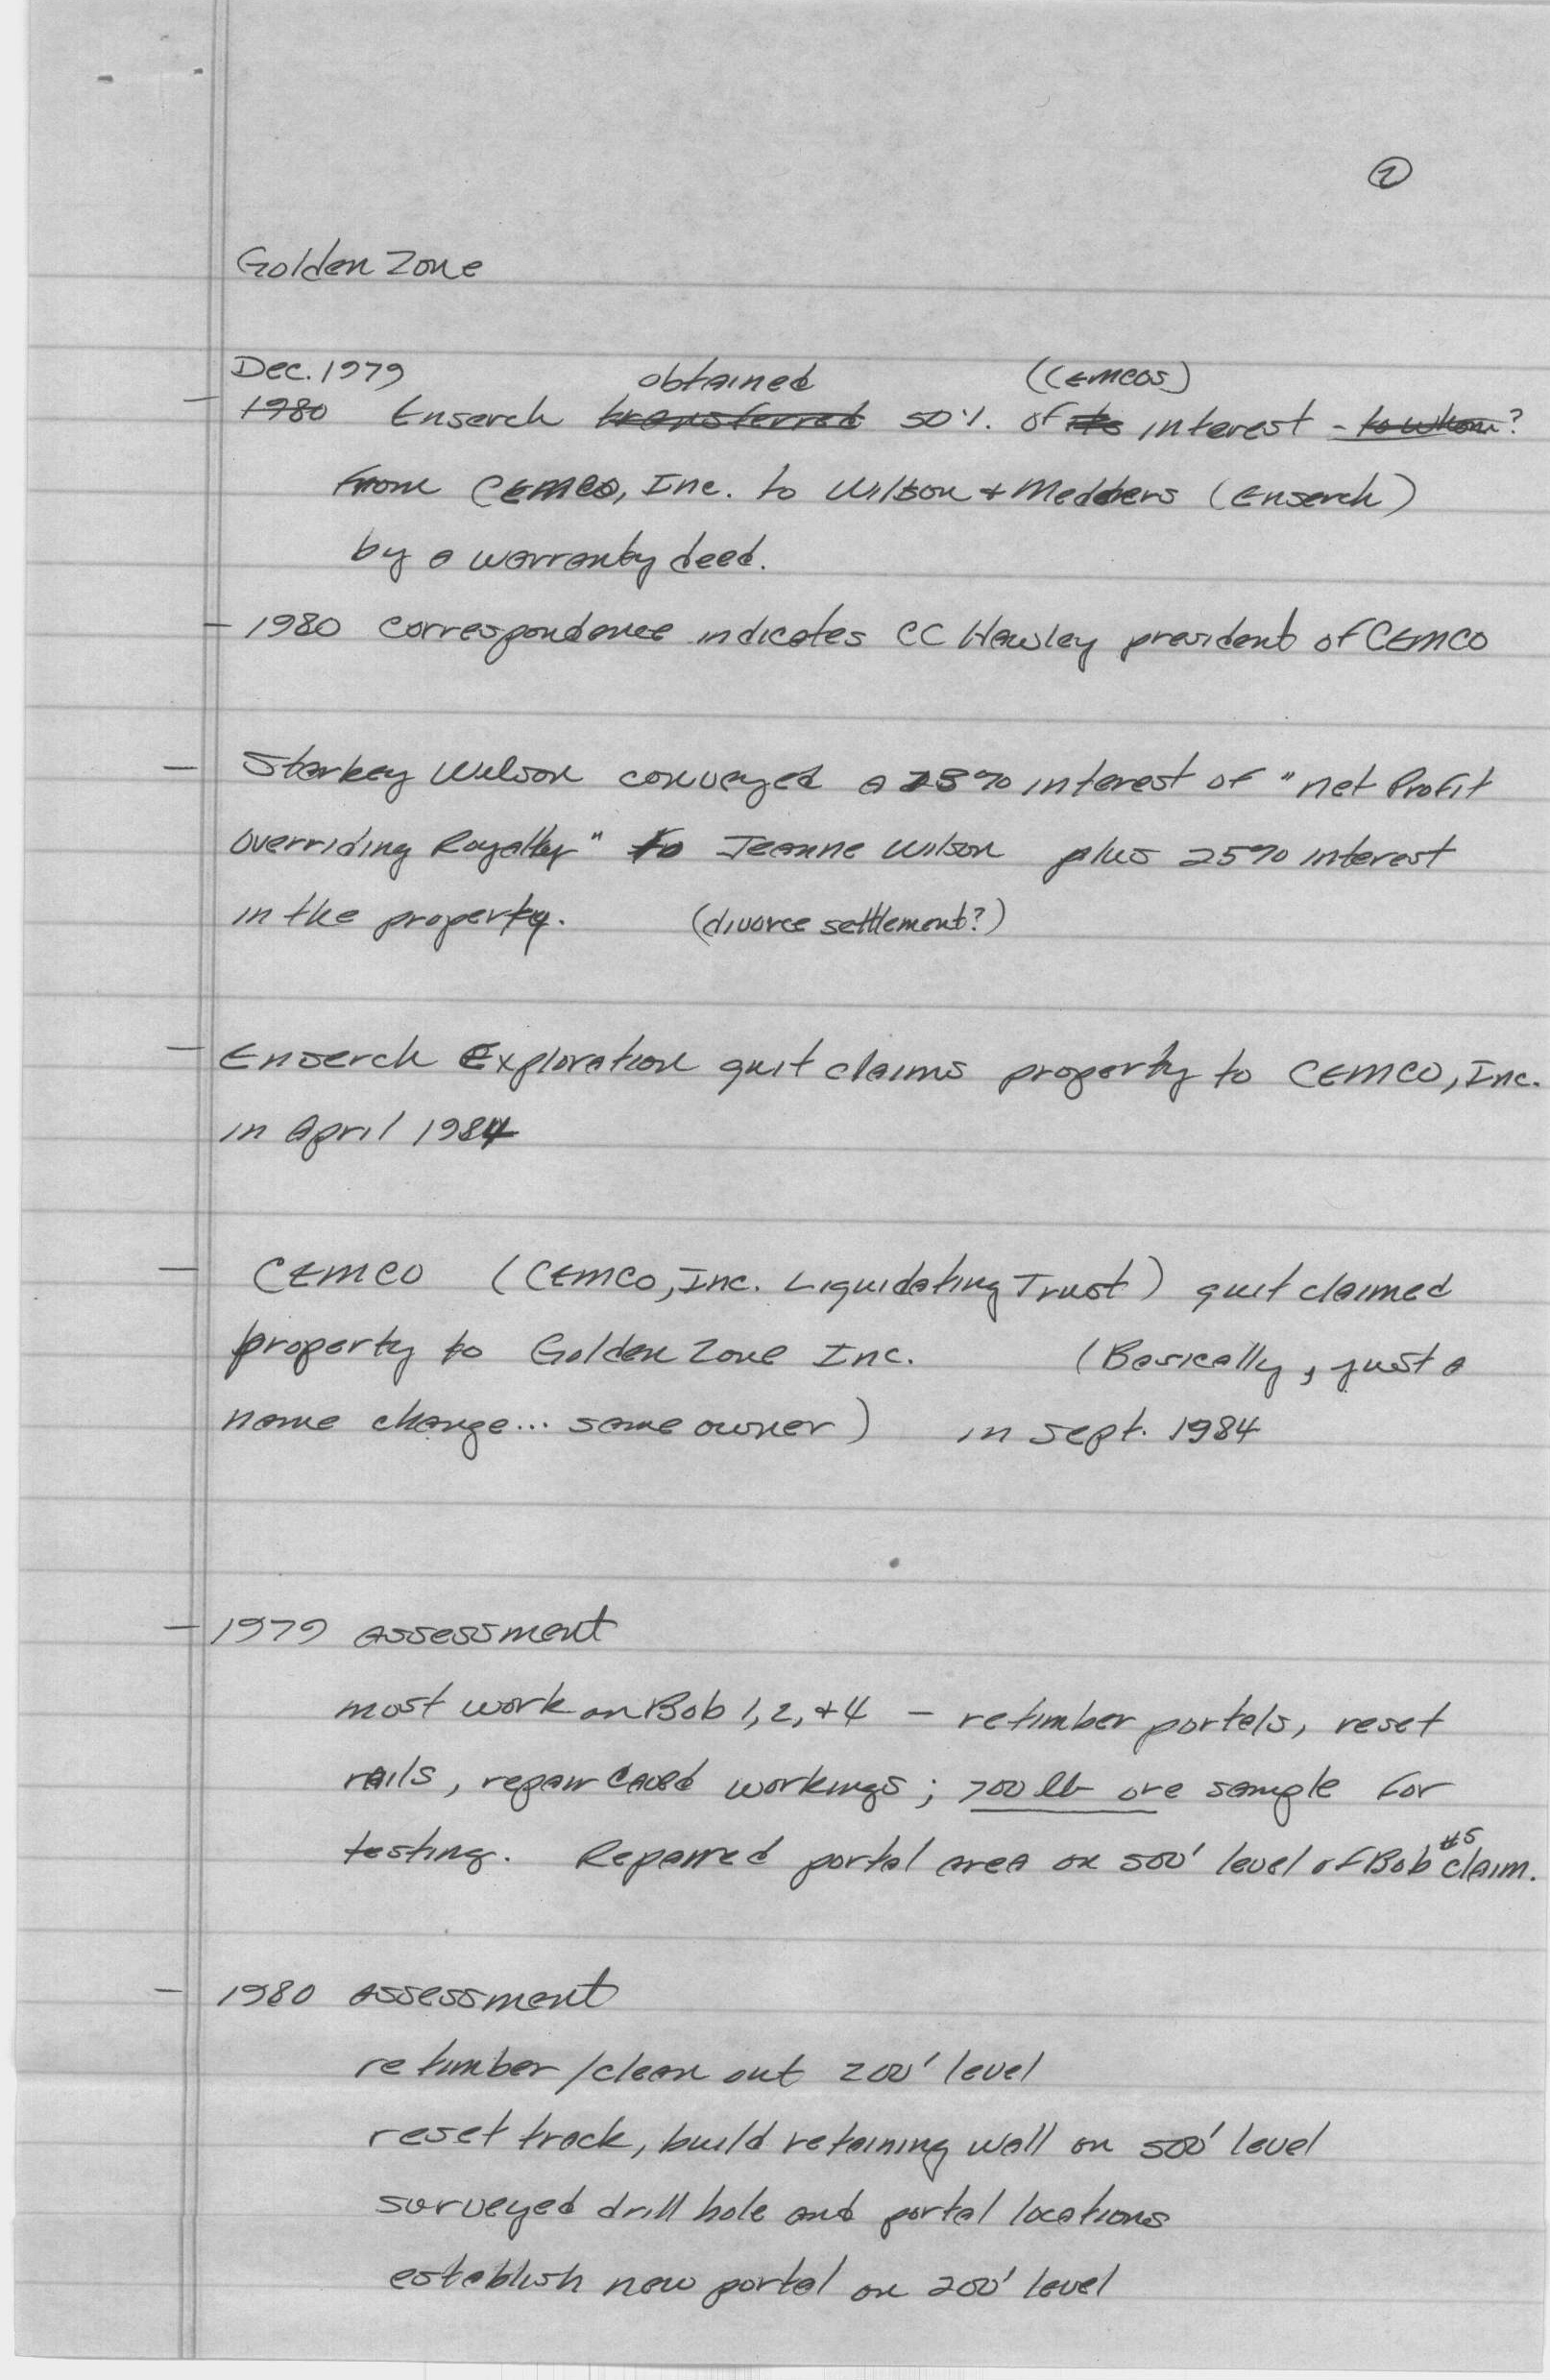 2
Golden Zone
Dec. 1979 obtained (CEMCOS)
- 1980 Enserch transferred 50% of its interest - to whom?
from CEMCO, Inc. to Wilson + Medders (Enserch)
by a warranty deed.
- 1980 correspondence indicates CC Hawley president of CEMCO
- Starkey Wilson conveyed a 25% interest of "net Profit
overriding Royalty" to Jeanne Wilson plus 25% interest
in the property. (divorce settlement?)
- Enserch Exploration quit claims property to CEMCO, Inc.
in April 1984
- CEMCO (CEMCO, Inc. Liquidating Trust) quit claimed
property to Golden Zone Inc. (Basically, just a
name change... same owner) in Sept. 1984
- 1979 assessment
most work on Bob 1, 2, + 4 - retimber portals, reset
rails, repair caved workings; 700 lb ore sample for
testing. Repaired portal area on 500' level of Bob #5 claim.
- 1980 assessment
retimber/clean out 200' level
reset track, build retaining wall on 500' level
surveyed drill hole and portal locations
establish new portal on 200' level